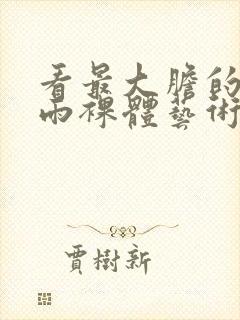 看最大膽的
兩裸體藝術
賈樹新